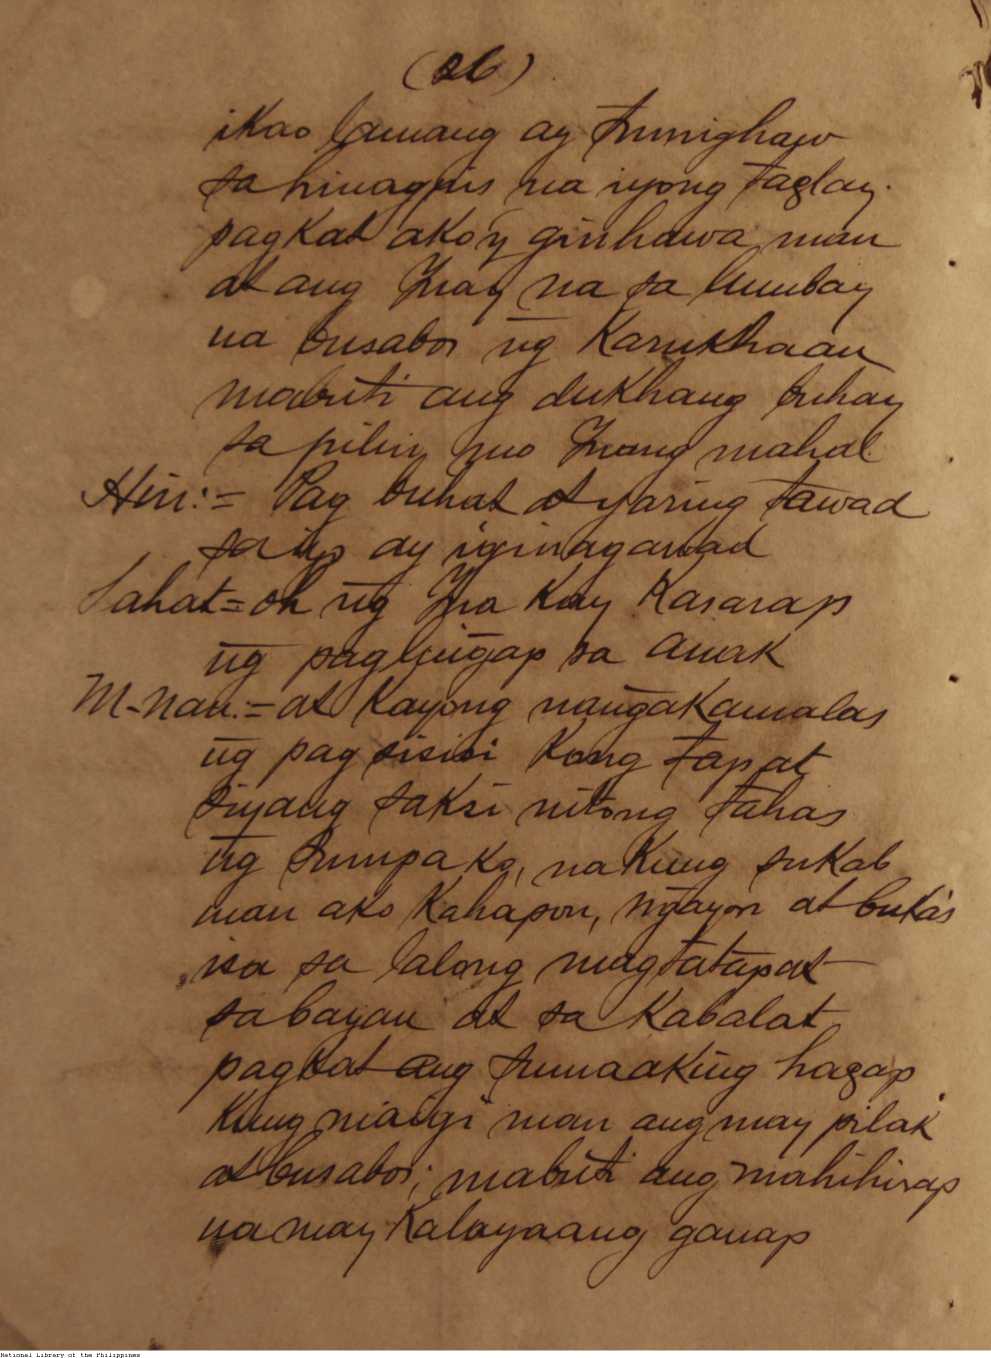 (26)
ikao lamang ay tumighaw
sa hinagpis na iyong taglay.
pagkat ako'y ginhawa man
at ang Inay na sa lumbay
na busabos ng̃ Karukhaan
mabuti ang dukhang buhay
sa piling mo Inang mahal.
Hin:= Pag buhat at yaring tawad
sa iyo ay iginagawad
Lahat= oh ng̃ Ina kay Kasarap
ng̃ paglin͠gap sa anak
M-Nan.:= at kayong nan͠gakamalas
ng̃ pag sisisi kong tapat
siyang saksi nitong tahas
ng̃ sumpa ko, na kung sukab
man ako kahapon, n͠gayon at bukás
isa sa lalong magtatapat
sa bayan at sa Kabalat
pagkat ang sumaaking hagap
kung maigi man ang may pilak
at busabos; mabuti ang mahihirap
na may Kalayaang ganap
National Library of the Philippines